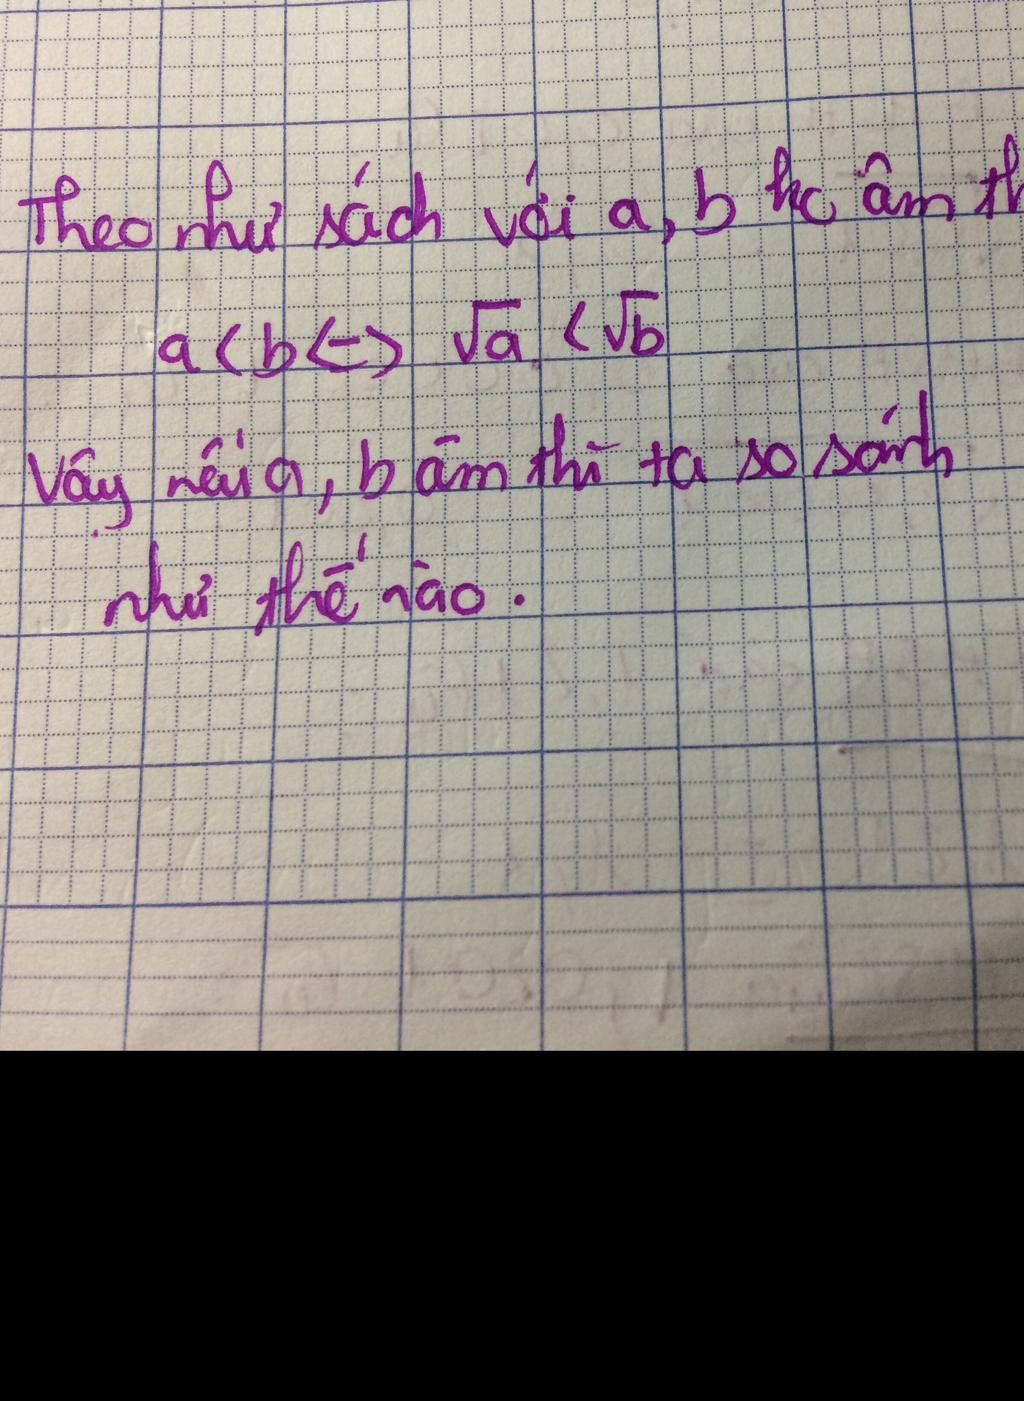 Theo như sách với a, b kc âm th
a < b <-> √a < √b
Vậy nếu a, b âm thì ta so sánh
như thế nào.